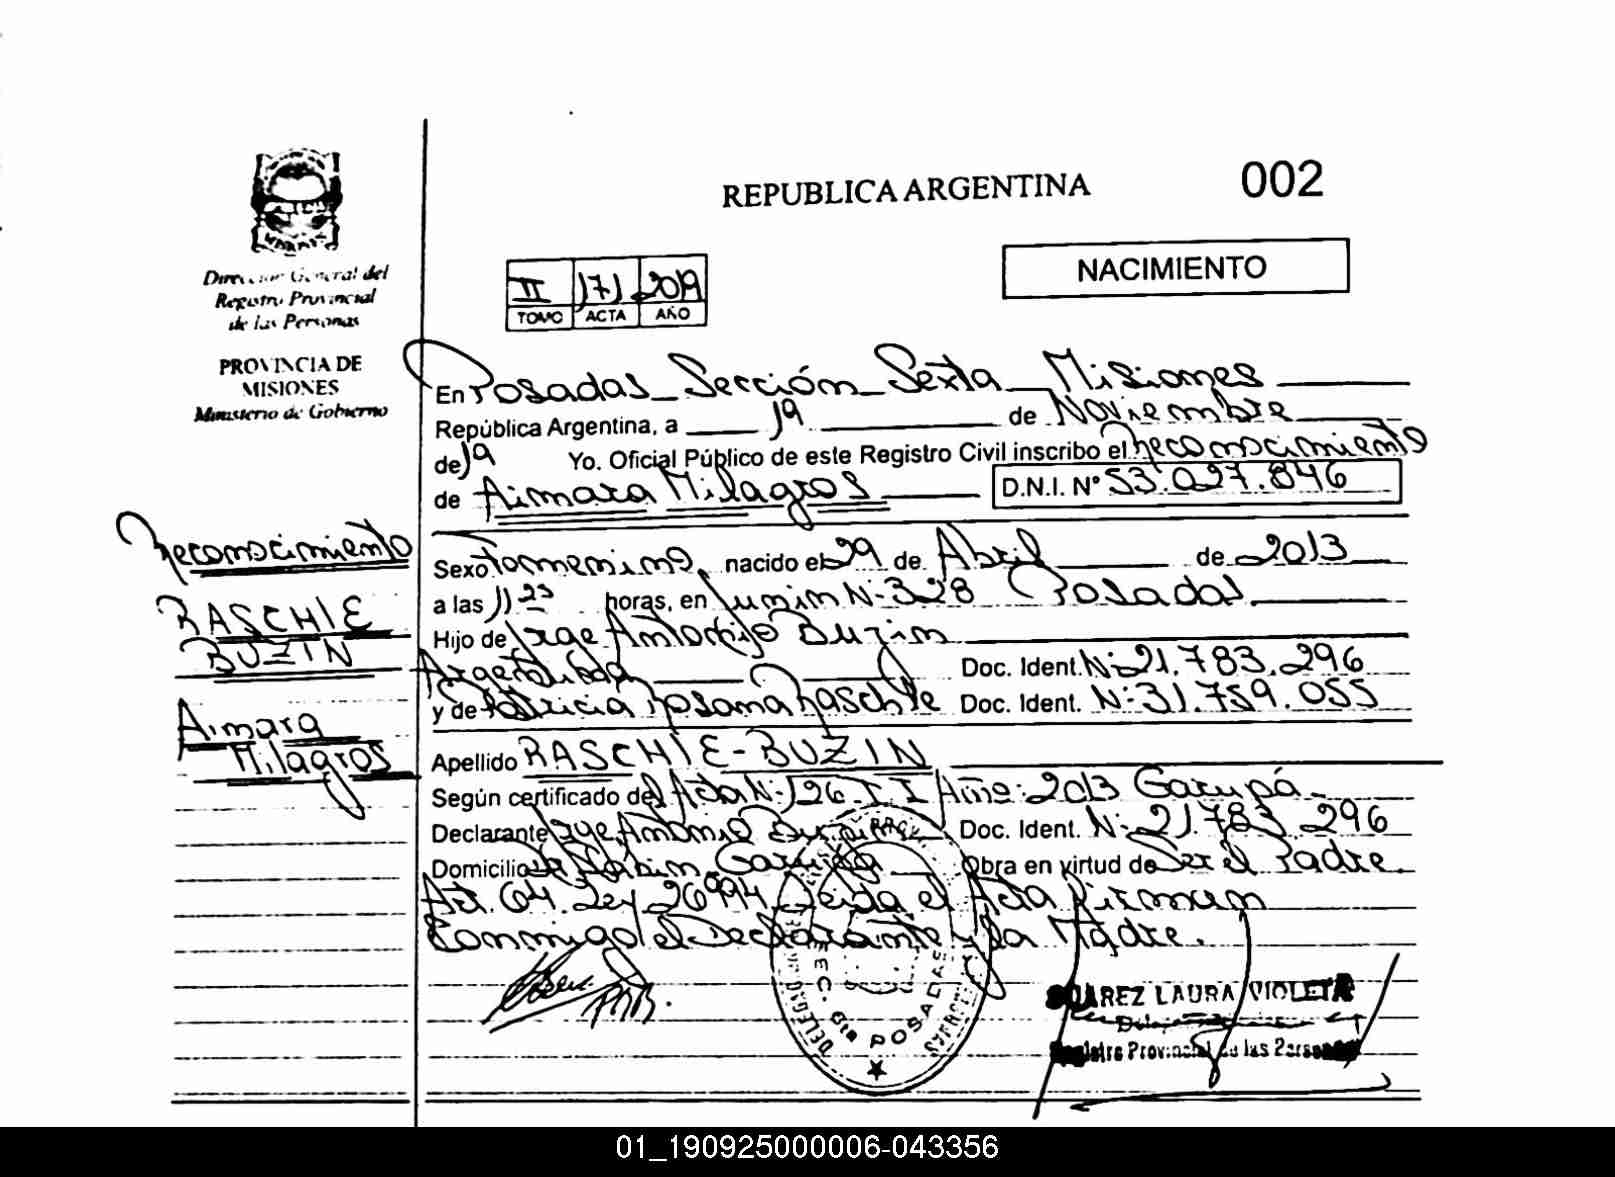 REPUBLICA ARGENTINA
002
Dirección General del
Registro Provincial
de las Personas
PROVINCIA DE
MISIONES
Ministerio de Gobierno
NACIMIENTO
II 171 2019
TOMO ACTA AÑO
En Posadas Sección Sexta Misiones
República Argentina, a 19 de Noviembre
de 19 Yo. Oficial Público de este Registro Civil inscribo el Reconocimiento
de Aimara Milagros D.N.I. N° 53.027.846
Reconocimiento
RASCHLE
BUZIN
Aimara
Milagros
Sexo Femenino nacido el 29 de Abril de 2013
a las 11 23 horas, en Junin N: 328 Posadas
Hijo de Jorge Antonio Buzin
Argentino Doc. Ident. N: 21.783.296
y de Patricia Rosana Raschle Doc. Ident. N: 31.759.055
Apellido RASCHLE-BUZIN
Según certificado de Acta N: 126 T I Año: 2013 Garupá
Declarante Jorge Antonio Buzin Doc. Ident. N: 21.783.296
Domicilio Garupá Obra en virtud de Ser el Padre.
Art. 64 Ley 26994 Leida el Acta Firman
Conmigo el Declarante y la Madre.
SUAREZ LAURA VIOLETA
Registro Provincial de las Personas
SEC. 6ta POSADAS
01_190925000006-043356